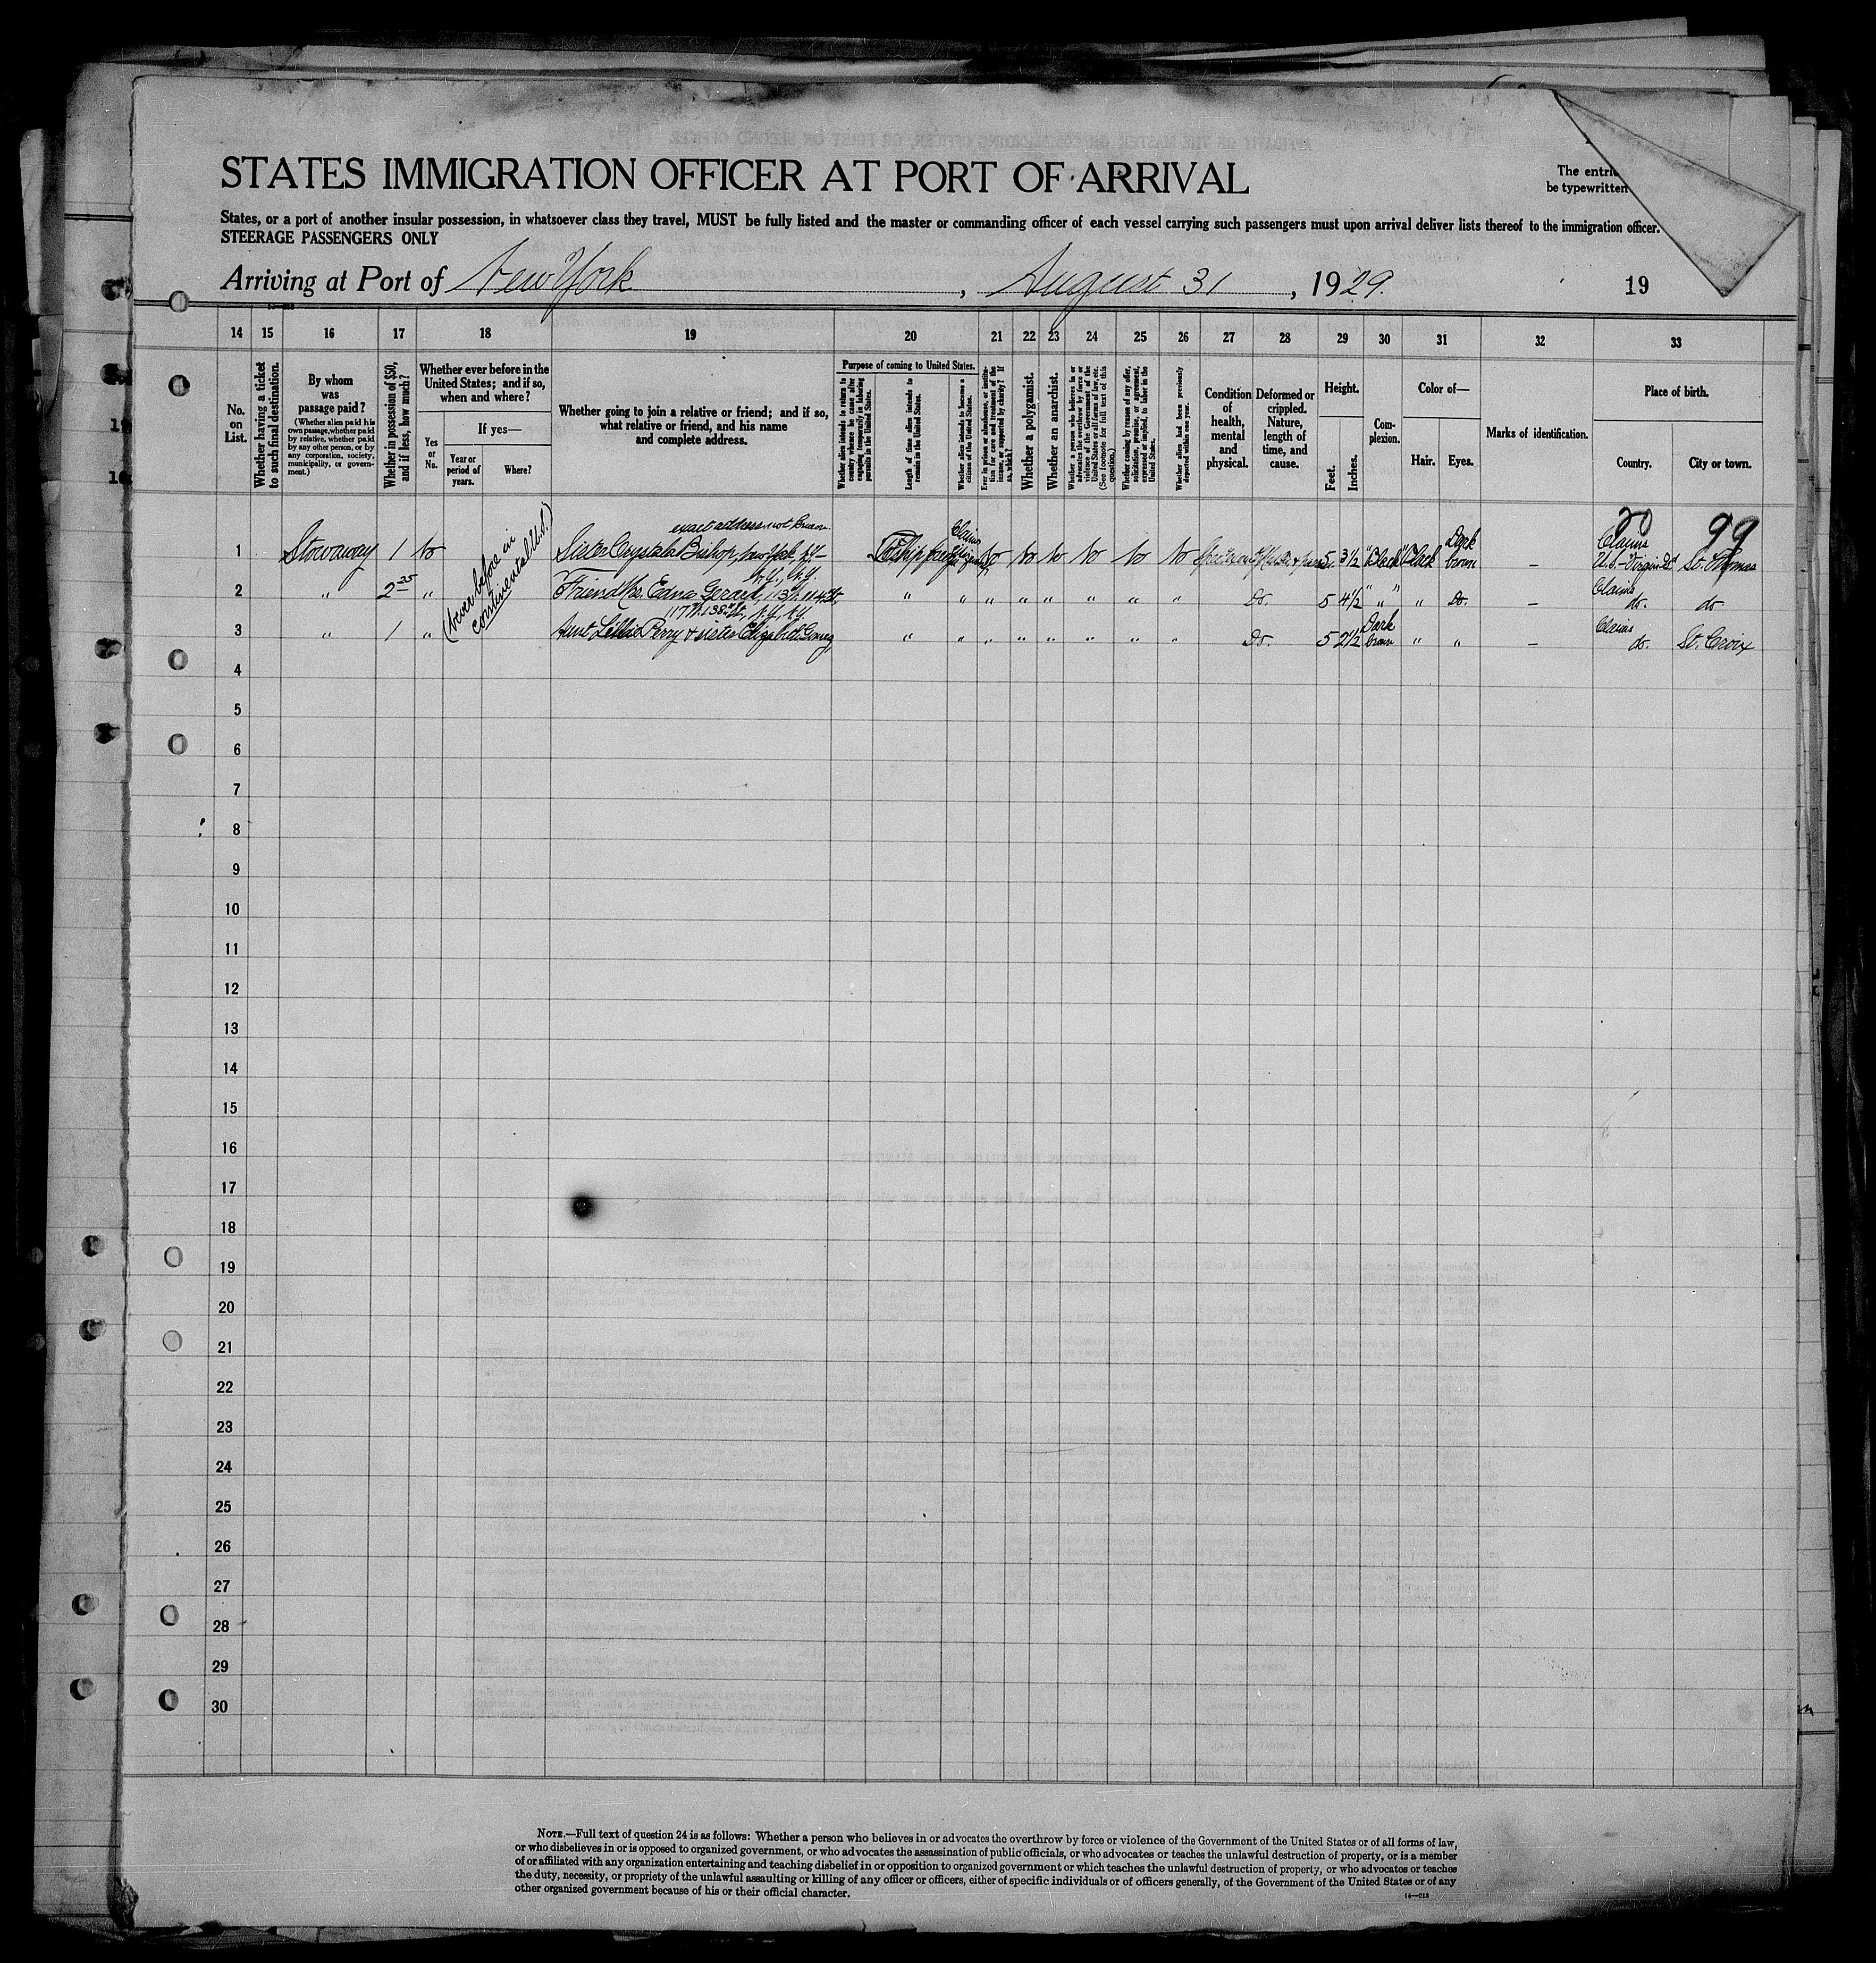 STATES IMMIGRATION OFFICER AT PORT OF ARRIVAL
The entri
be typewritten
States, or a port of another insular possession, in whatsoever class they travel, MUST be fully listed and the master or commanding officer of each vessel carrying such passengers must upon arrival deliver lists thereof to the immigration officer.
STEERAGE PASSENGERS ONLY
Arriving at Port of New York, August 31, 1929. 19
14 15 16 17 18 19 20 21 22 23 24 25 26 27 28 29 30 31 32 33
No. on List.
Whether having a ticket to such final destination.
By whom was passage paid?
(Whether alien paid his own passage, whether paid by relative, whether paid by any other person, or by any corporation, society, municipality, or government.)
Whether in possession of $50, and if less, how much?
Whether ever before in the United States; and if so, when and where?
Yes or No.
If yes—
Year or period of years.
Where?
Whether going to join a relative or friend; and if so, what relative or friend, and his name and complete address.
Purpose of coming to United States.
Whether alien intends to return to country whence he came after engaging temporarily in laboring pursuits in the United States.
Length of time alien intends to remain in the United States.
Whether alien intends to become a citizen of the United States.
Ever in prison or almshouse, or institution for care and treatment of the insane, or supported by charity? If so, which?
Whether a polygamist.
Whether an anarchist.
Whether a person who believes in or advocates the overthrow by force or violence of the Government of the United States or all forms of law, etc. (See footnote for full text of this question.)
Whether coming by reason of any offer, solicitation, promise, or agreement, expressed or implied, to labor in the United States.
Whether alien had been previously deported within one year.
Condition of health, mental and physical.
Deformed or crippled. Nature, length of time, and cause.
Height.
Feet.
Inches.
Complexion.
Color of—
Hair.
Eyes.
Marks of identification.
Place of birth.
Country.
City or town.
(never before in continental U.S.)
exact address not known
20 99
1 Stowaway 1 No Sister Crystala Bishop, New York, N.Y. Claims No No No No No No 5 3½ Black Black Dark brown – Claims U.S. Virgin Isl St. Thomas
N.Y., N.Y.
2 " 2 25 " Friend Mrs. Edna Gerard, 113 W. 114 St, " " " " " " " " Do. 5 4½ " " Do. – Claims do. do
117 W. 138 St, N.Y., N.Y.
3 " 1 " Aunt Lillie Perry & sister Elizabeth Gomez " " " " " " " " Do. 5 2½ Dark brown " " – Claims do. St. Croix
4
5
6
7
8
9
10
11
12
13
14
15
16
17
18
19
20
21
22
23
24
25
26
27
28
29
30
NOTE.—Full text of question 24 is as follows: Whether a person who believes in or advocates the overthrow by force or violence of the Government of the United States or of all forms of law,
or who disbelieves in or is opposed to organized government, or who advocates the assassination of public officials, or who advocates or teaches the unlawful destruction of property, or is a member
of or affiliated with any organization entertaining and teaching disbelief in or opposition to organized government or which teaches the unlawful destruction of property, or who advocates or teaches
the duty, necessity, or propriety of the unlawful assaulting or killing of any officer or officers, either of specific individuals or of officers generally, of the Government of the United States or of any
other organized government because of his or their official character.
14—213